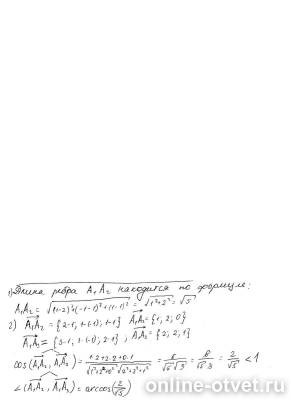 1) Длина ребра A₁A₂ находится по формуле:
A₁A₂ = √(1-2)²+(-1-1)²+(1-1)² = √1²+2² = √5
2) A₁A₂ = {2-1, 1-(-1), 1-1} A₁A₂ = {1, 2, 0}
A₁A₃ = {3-1, 1-(-1), 2-1} , A₁A₃ = {2, 2, 1}
cos(A₁A₂, A₁A₃) = 1·2+2·2+0·1 / √1²+2²+0² √2²+2²+1² = 6/√5√9 = 6/√5·3 = 2/√5 < 1
∠(A₁A₂, A₁A₃) = arccos(2/√5)
online-otvet.ru